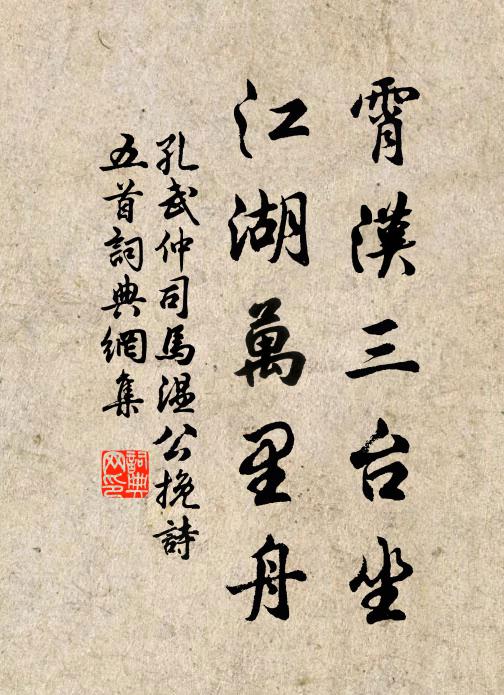 霄漢三台坐
江湖萬里舟
孔武仲司馬溫公挽詩
五首詞典網集
詞典網印